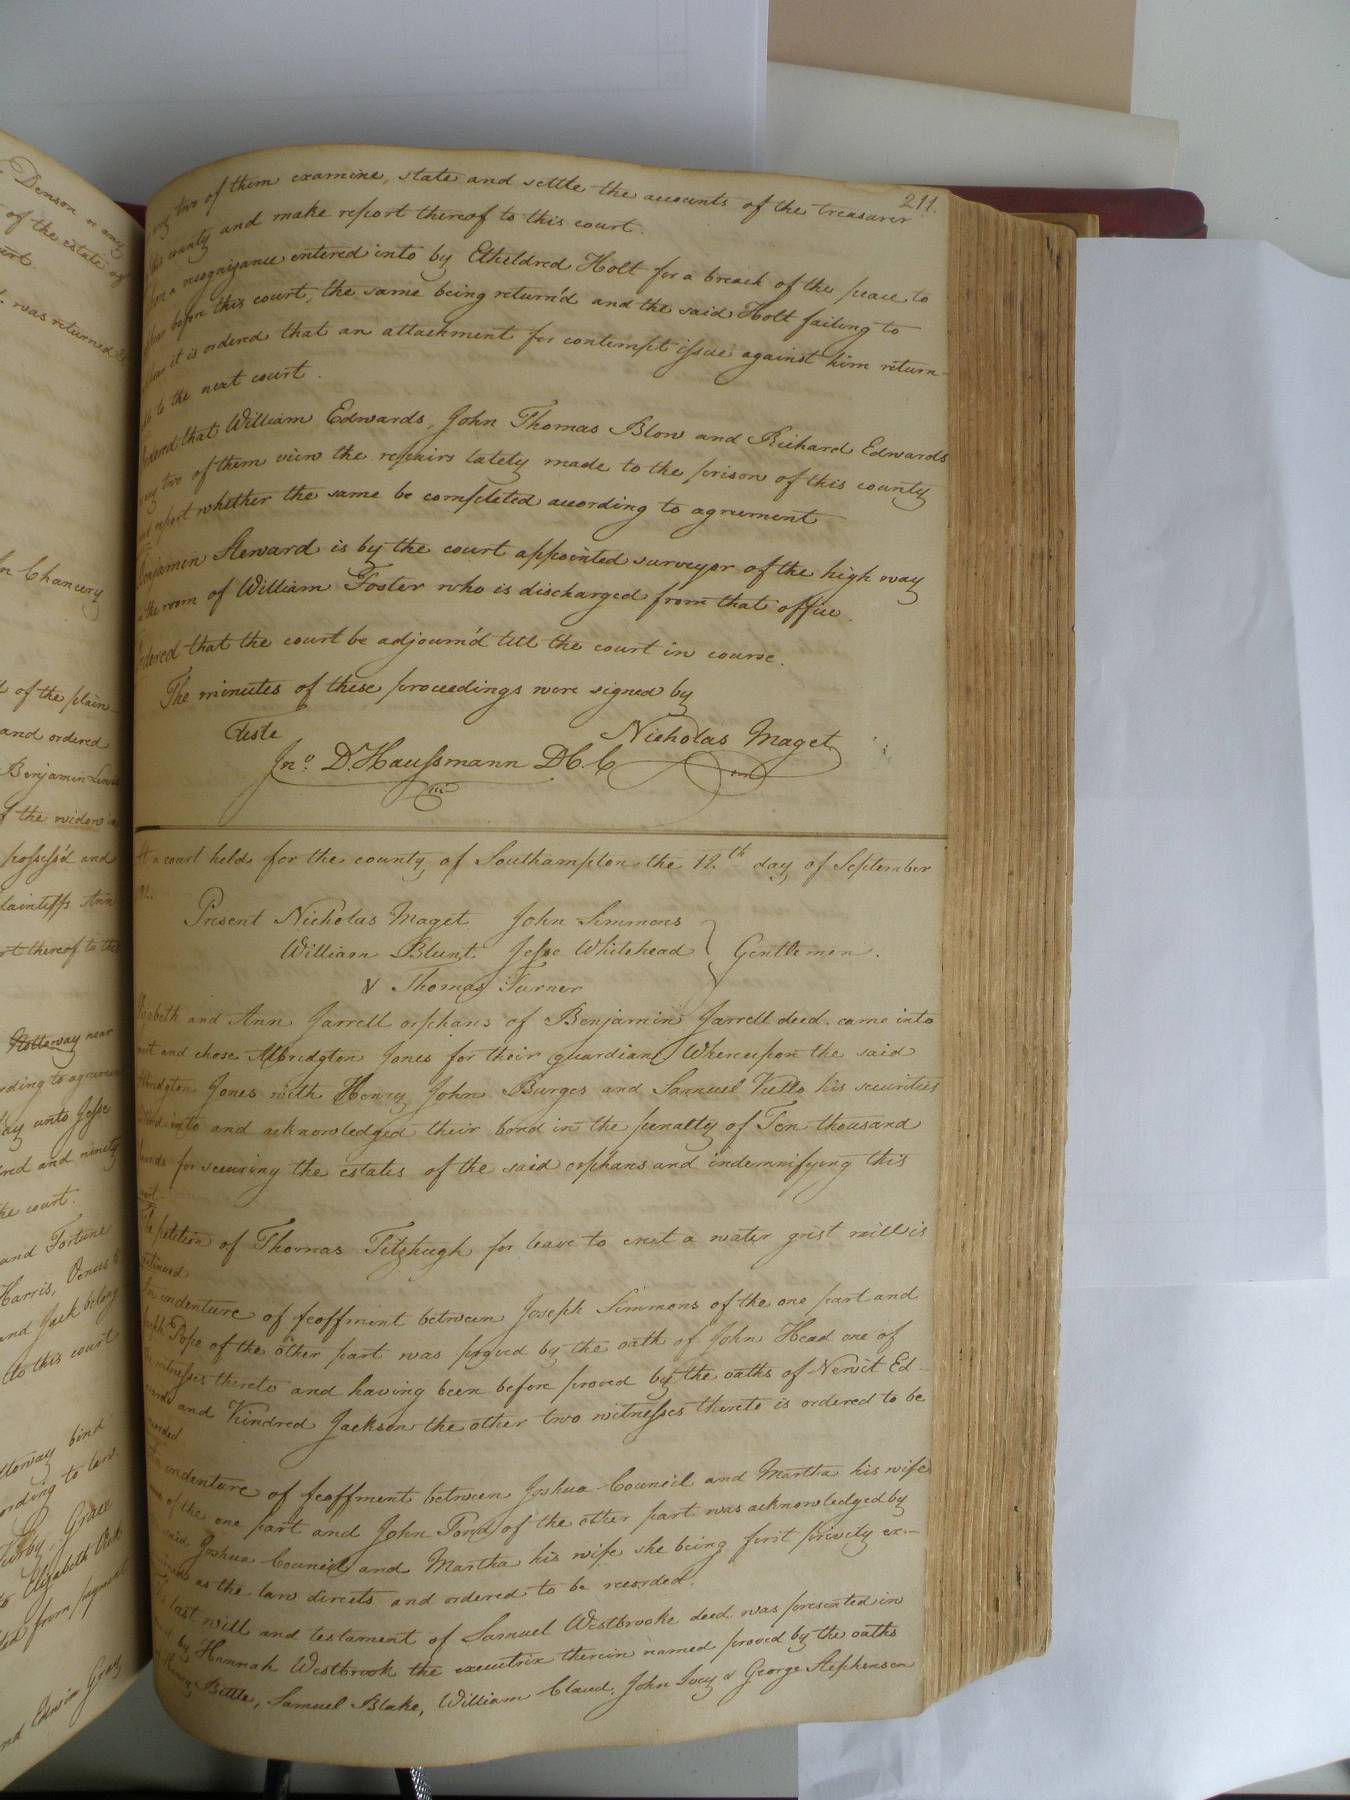 211.
any two of them examine, state and settle the accounts of the treasurer
this county and make report thereof to this court.
a recognizance entered into by Etheldred Holt for a breach of the peace to
before this court, the same being return'd and the said Holt failing to
it is ordered that an attachment for contempt issue against him return-
to the next court.
Ordered that William Edwards, John Thomas Blow and Richard Edwards
any two of them view the repairs lately made to the prison of this county
and report whether the same be completed according to agreement
Benjamin Steward is by the court appointed surveyor of the high way
the room of William Foster who is discharged from that office.
Ordered that the court be adjourn'd till the court in course.
The minutes of these proceedings were signed by
Teste
Nicholas Maget
Jno. D. Haussmann D.C.C
At a court held for the county of Southampton the 12th day of September
Present Nicholas Maget John Simmons
William Blunt Jesse Whitehead } Gentlemen.
& Thomas Turner
Elizabeth and Ann Jarrell orphans of Benjamin Jarrell deed. came into
court and chose Albridgton Jones for their guardian Whereupon the said
Albridgton Jones with Henry John Burges and Samuel Kello his securities
into and acknowledged their bond in the penalty of Ten thousand
pounds for securing the estates of the said orphans and indemnifying this
court.
The petition of Thomas Fitzhugh for leave to erect a water grist mill is
continued
An indenture of feoffment between Joseph Simmons of the one part and
Joseph Pope of the other part was proved by the oath of John Head one of
the witnesses thereto and having been before proved by the oaths of Newit Ed-
wards and Kindred Jackson the other two witnesses thereto is ordered to be
recorded
An indenture of feoffment between Joshua Council and Martha his wife
of the one part and John Pond of the other part was acknowledged by
said Joshua Council and Martha his wife she being first privily ex-
as the law directs and ordered to be recorded.
The last will and testament of Samuel Westbrooke deed. was presented in
by Hannah Westbrook the executrix therein named proved by the oaths
Bittle, Samuel Blake, William Claud, John Ivey & George Stephenson
Denson or any
of the estate of
was returned
In Chancery
of the plain-
and ordered
Benjamin Lewis
of the widow
possess'd and
plaintiffs Ann
thereof to the
Holloway near
according to agreement
unto Jesse
and ninety
the court.
and Fortune
Harris, Venus &
and Jack belong
to this court
Holloway bind
according to law.
Grace
to Elizabeth
from payment
and Edwin Gray